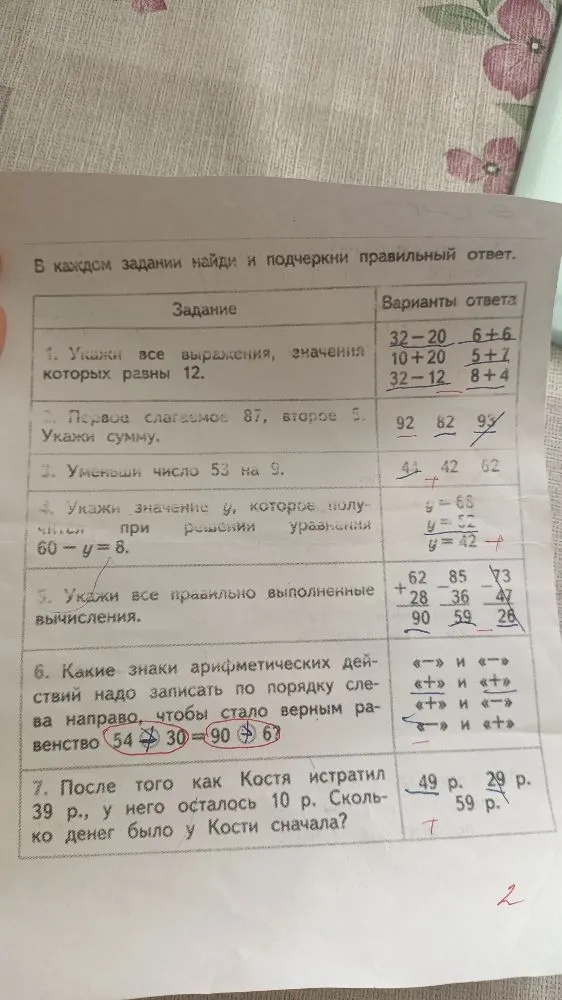 В каждом задании найди и подчеркни правильный ответ.
Задание
Варианты ответа
1. Укажи все выражения, значения
которых равны 12.
32 − 20 6 + 6
10 + 20 5 + 7
32 − 12 8 + 4
2. Первое слагаемое 87, второе 5.
Укажи сумму.
92 82 93
3. Уменьши число 53 на 9.
44 42 62
+
4. Укажи значение y, которое полу-
чится при решении уравнения
60 − y = 8.
y = 68
y = 52
y = 42 +
5. Укажи все правильно выполненные
вычисления.
+ 62 − 85 − 73
28 36 47
90 59 26
6. Какие знаки арифметических дей-
ствий надо записать по порядку сле-
ва направо, чтобы стало верным ра-
венство 54 + 30 = 90 + 6?
«−» и «−»
«+» и «+»
«+» и «−»
«−» и «+»
7. После того как Костя истратил
39 р., у него осталось 10 р. Сколь-
ко денег было у Кости сначала?
49 р. 29 р.
59 р.
+
2